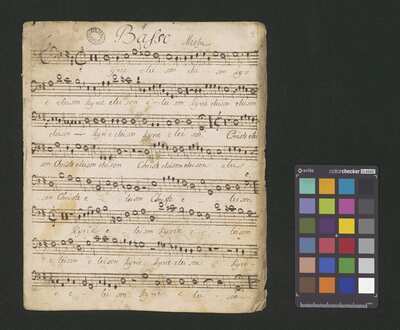 Basso Missa
kyrie eleison elei son kyrie
e eleison kyrie eleison e lei son kyrie eleison eleison
eleison kyrie eleison kyrie elei son Christe elei
son Christe eleison Christe eleison eleison e lei
son Christe e leison Christe e leison
kyrie e leison kyrie e leison
e eleison e leison kyrie eleison e kyrie
e e lei son kyrie e lei son
x-rite colorchecker CLASSIC